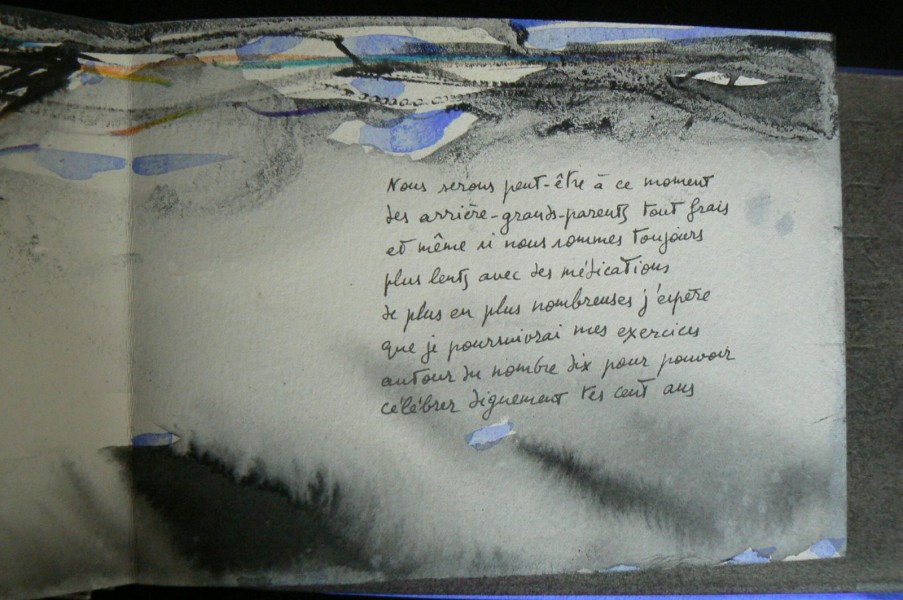 Nous serons peut-être à ce moment
des arrière-grands-parents tout frais
et même si nous sommes toujours
plus lents avec des médications
de plus en plus nombreuses j'espère
que je poursuivrai mes exercices
autour du nombre dix pour pouvoir
célébrer dignement tes cent ans